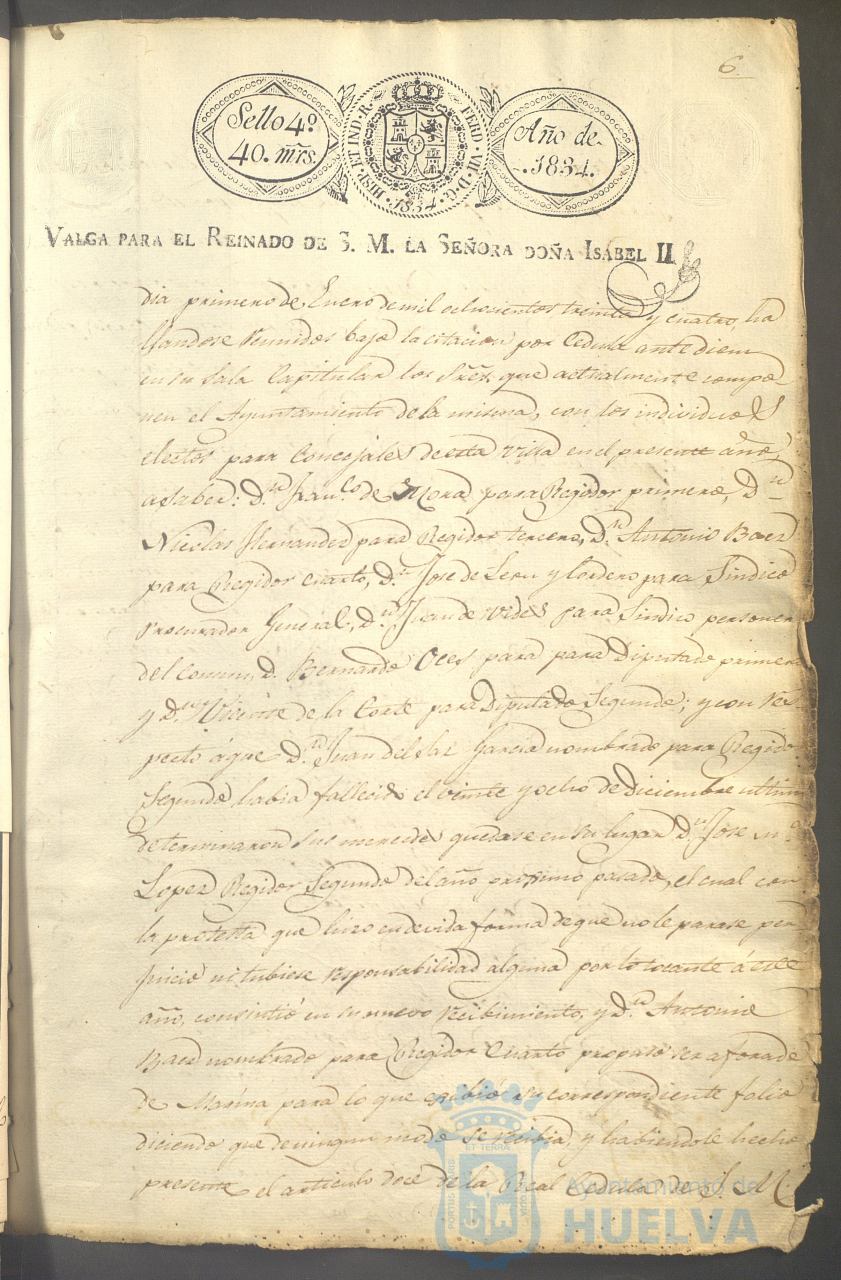 6.
Sello 4º
40. mrs.
HISP. ET IND. R. FERD. VII. D. G. 1834.
Año de
1834.
VALGA PARA EL REINADO DE S. M. LA SEÑORA DOÑA ISABEL II
dia primero de Enero de mil ochocientos treinta y cuatro, ha
llandose reunidos bajo la citacion por Cedula ante diem
en su Sala Capitular los Sres. que actualmente compo
nen el Ayuntamiento de la misma, con los individuos
electos para Concejales de esta Villa en el presente año,
a saber: D.n Fran.co de Mora para Regidor primero, D.n
Nicolas Hernandez para Regidor tercero, D.n Antonio Baez
para Regidor cuarto, D.n Jose de Leon y Cordero para Sindico
Procurador General, D.n Juan de Vides para Sindico personer
del Comun, D. Bernardo Oces para para Diputado primero
y D.n Vicente de la Corte para Diputado Segundo; y con res
pecto á que D.n Juan del Garcia nombrado para Regidor
Segundo habia fallecido el veinte y ocho de Diciembre ultimo
determinaron sus mercedes quedase en su lugar D.n Jose M.a
Lopez Regidor Segundo del año procsimo pasado, el cual con
la protesta que hizo en devida forma de que no le parase per
juicio ni tubiese responsabilidad alguna por lo tocante á este
año, consintió en su nuevo recibimiento, y D.n Antonio
Baez nombrado para Regidor Cuarto propuso ser aforado
de Marina para lo que exibió su correspondiente folio
diciendo que de ningun modo se recibia, y habiendole hecho
presente el articulo doce de la Real Cedula de S. M.
PORTUS MARIS
ET TERRÆ
CUSTODIA
Ayuntamiento de
HUELVA